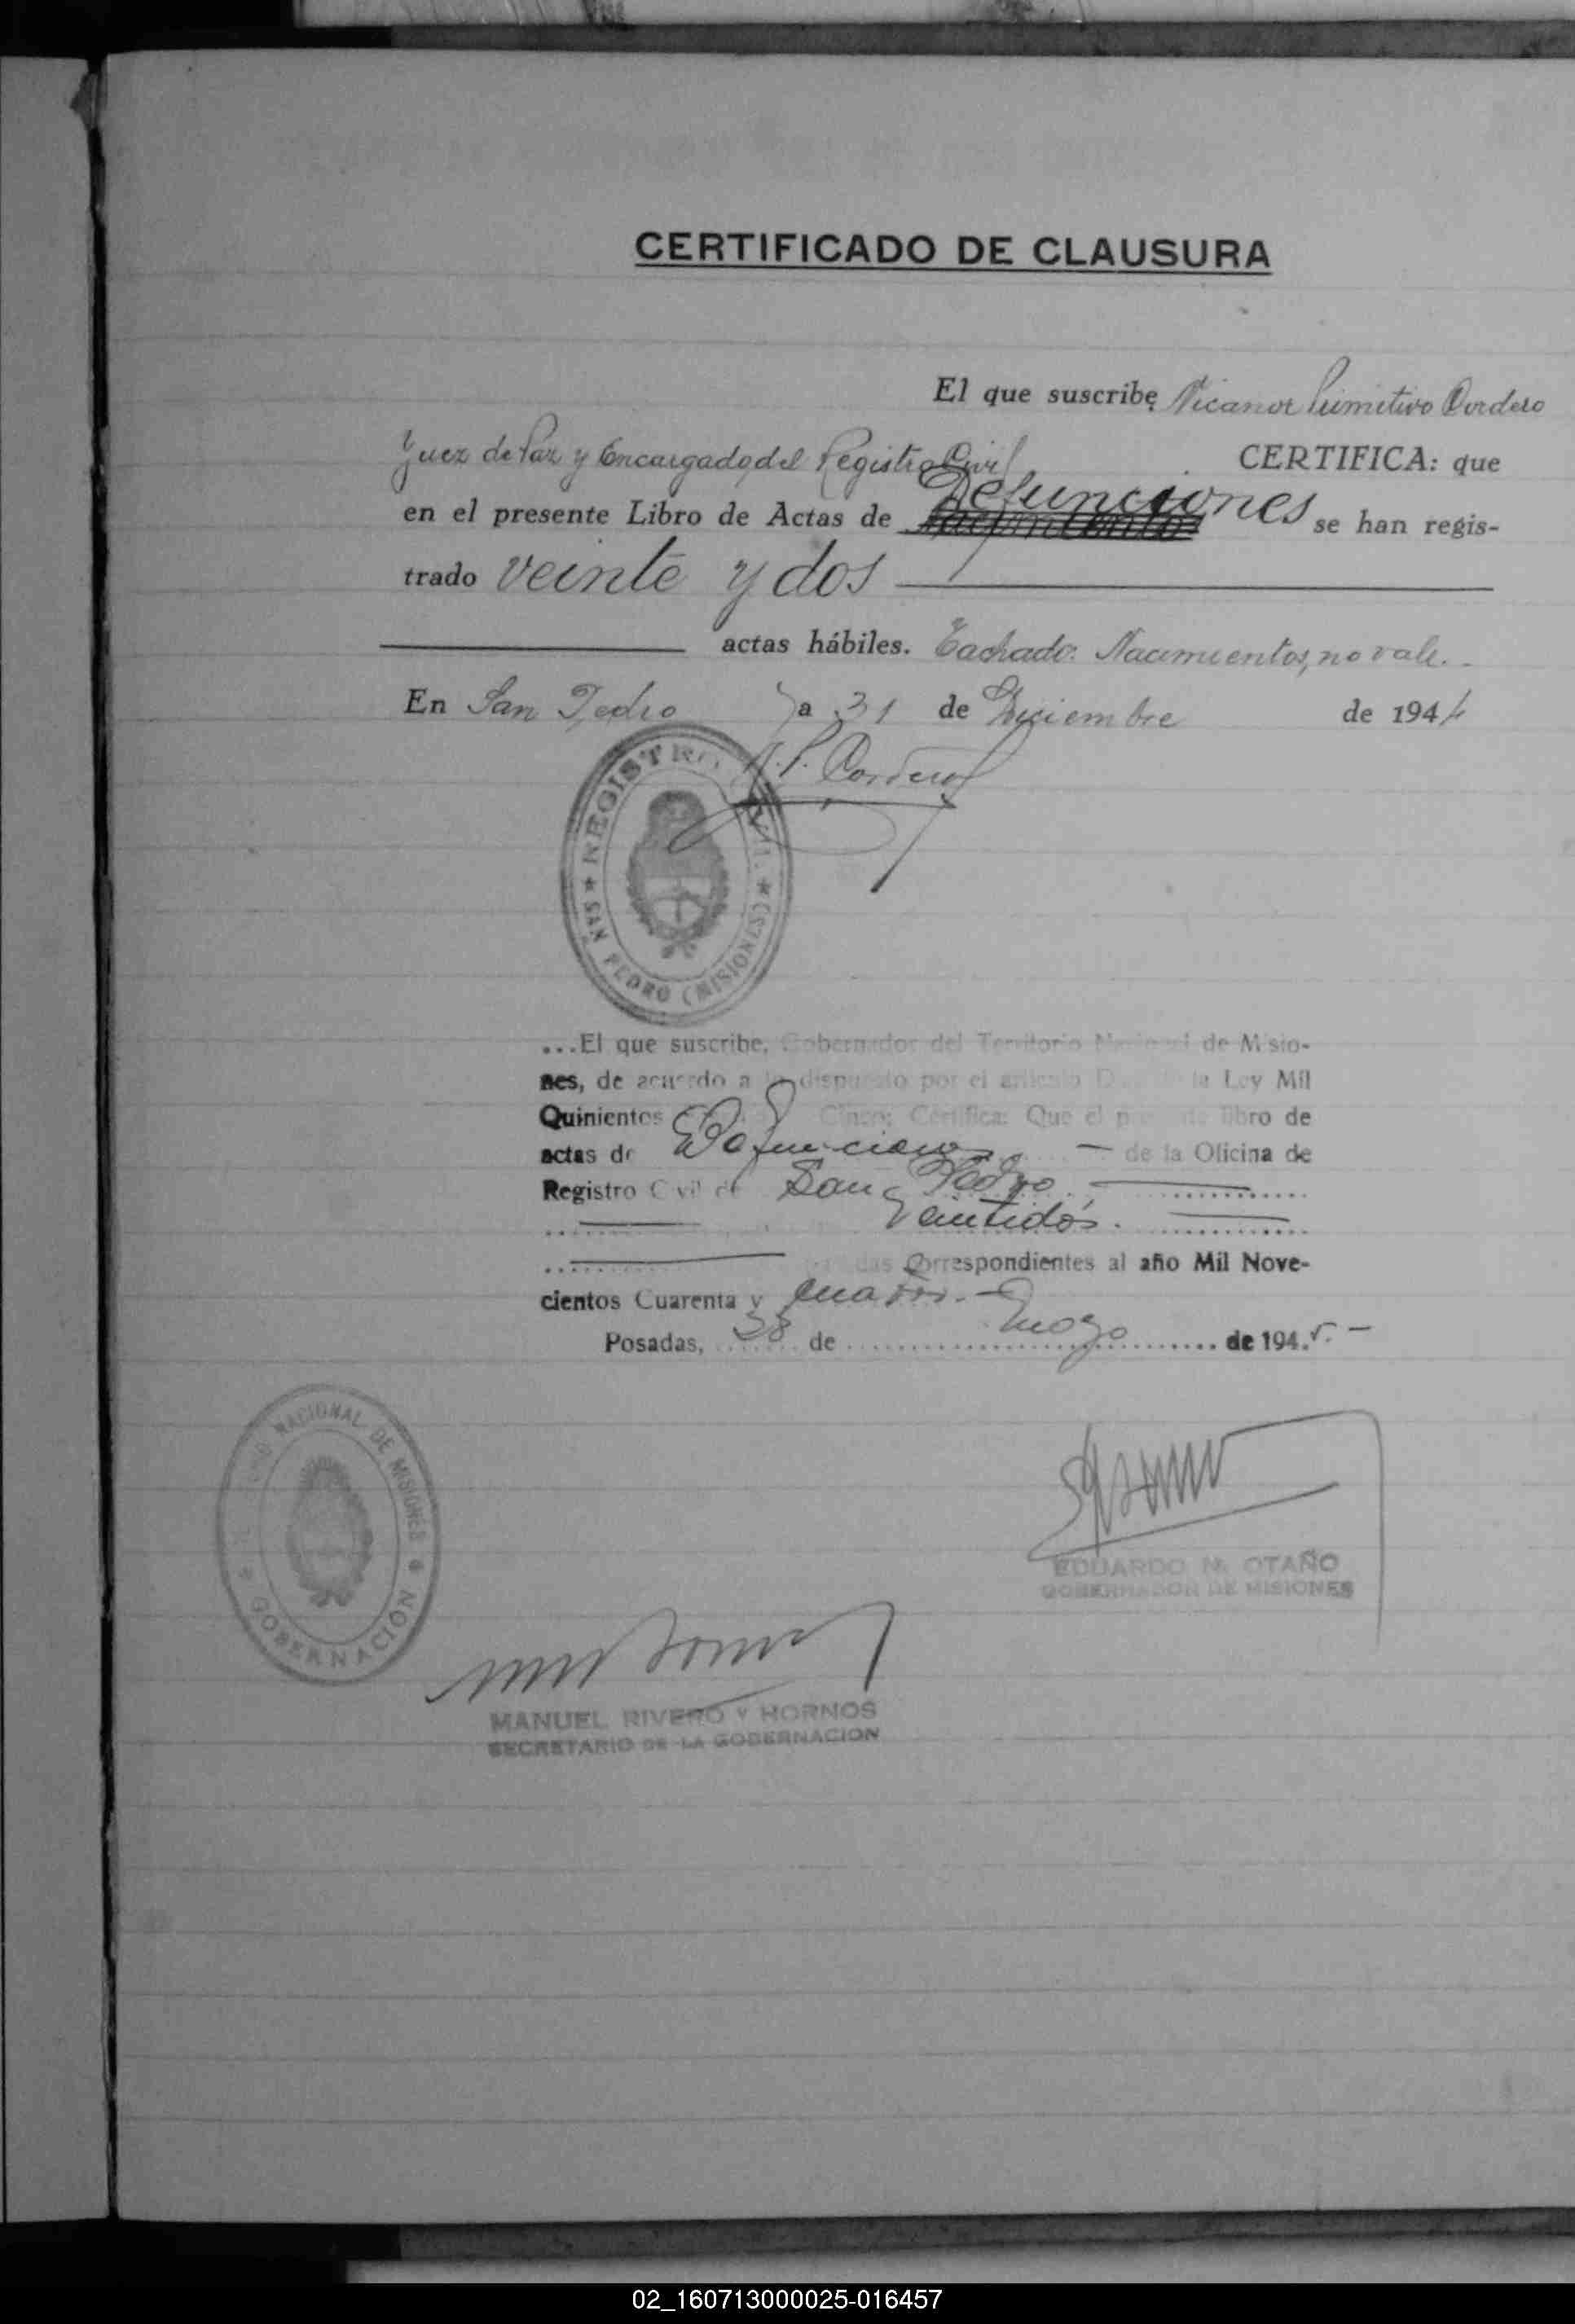 CERTIFICADO DE CLAUSURA
El que suscribe Nicanor Primitivo Cordero
Juez de Paz y Encargado del Registro Civil CERTIFICA: que
en el presente Libro de Actas de Defunciones se han regis-
trado veinte y dos
actas hábiles. Tachado: Nacimientos, no vale.
En San Pedro a 31 de Diciembre de 1944
N. P. Cordero
REGISTRO CIVIL
SAN PEDRO (MISIONES)
...El que suscribe, Gobernador del Territorio Nacional de Misio-
nes, de acuerdo a lo dispuesto por el artículo de la Ley Mil
Quinientos Cinco; Certifica: Que el presente libro de
actas de Defunciones de la Oficina de
Registro Civil de San Pedro
Veintidós.
das correspondientes al año Mil Nove-
cientos Cuarenta y cuatro.-
Posadas, 28 de de 1945.-
NACIONAL DE MISIONES
GOBERNACION
EDUARDO N. OTAÑO
GOBERNADOR DE MISIONES
MANUEL RIVERO Y HORNOS
SECRETARIO DE LA GOBERNACION
02_160713000025-016457